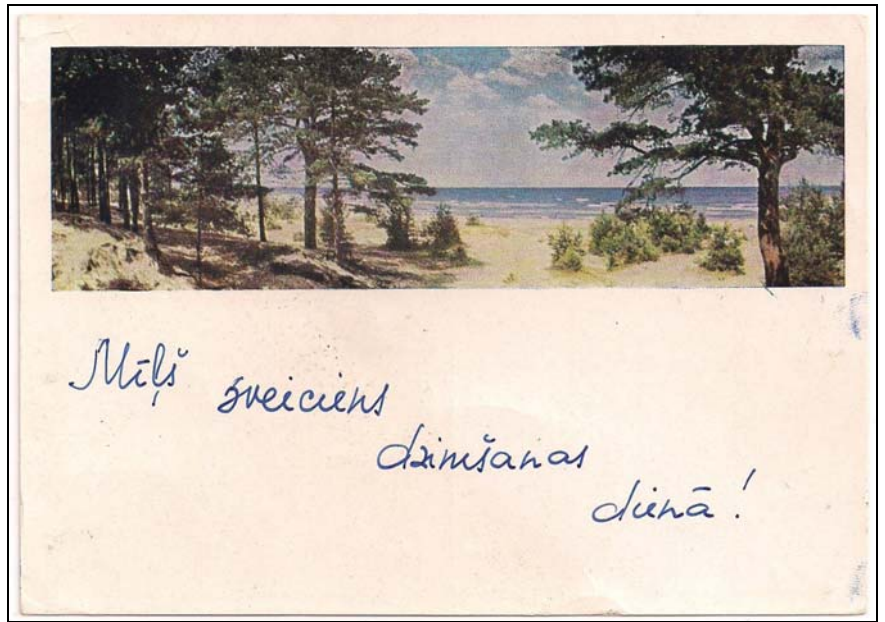 Mīļš
sveiciens
dzimšanas
dienā!